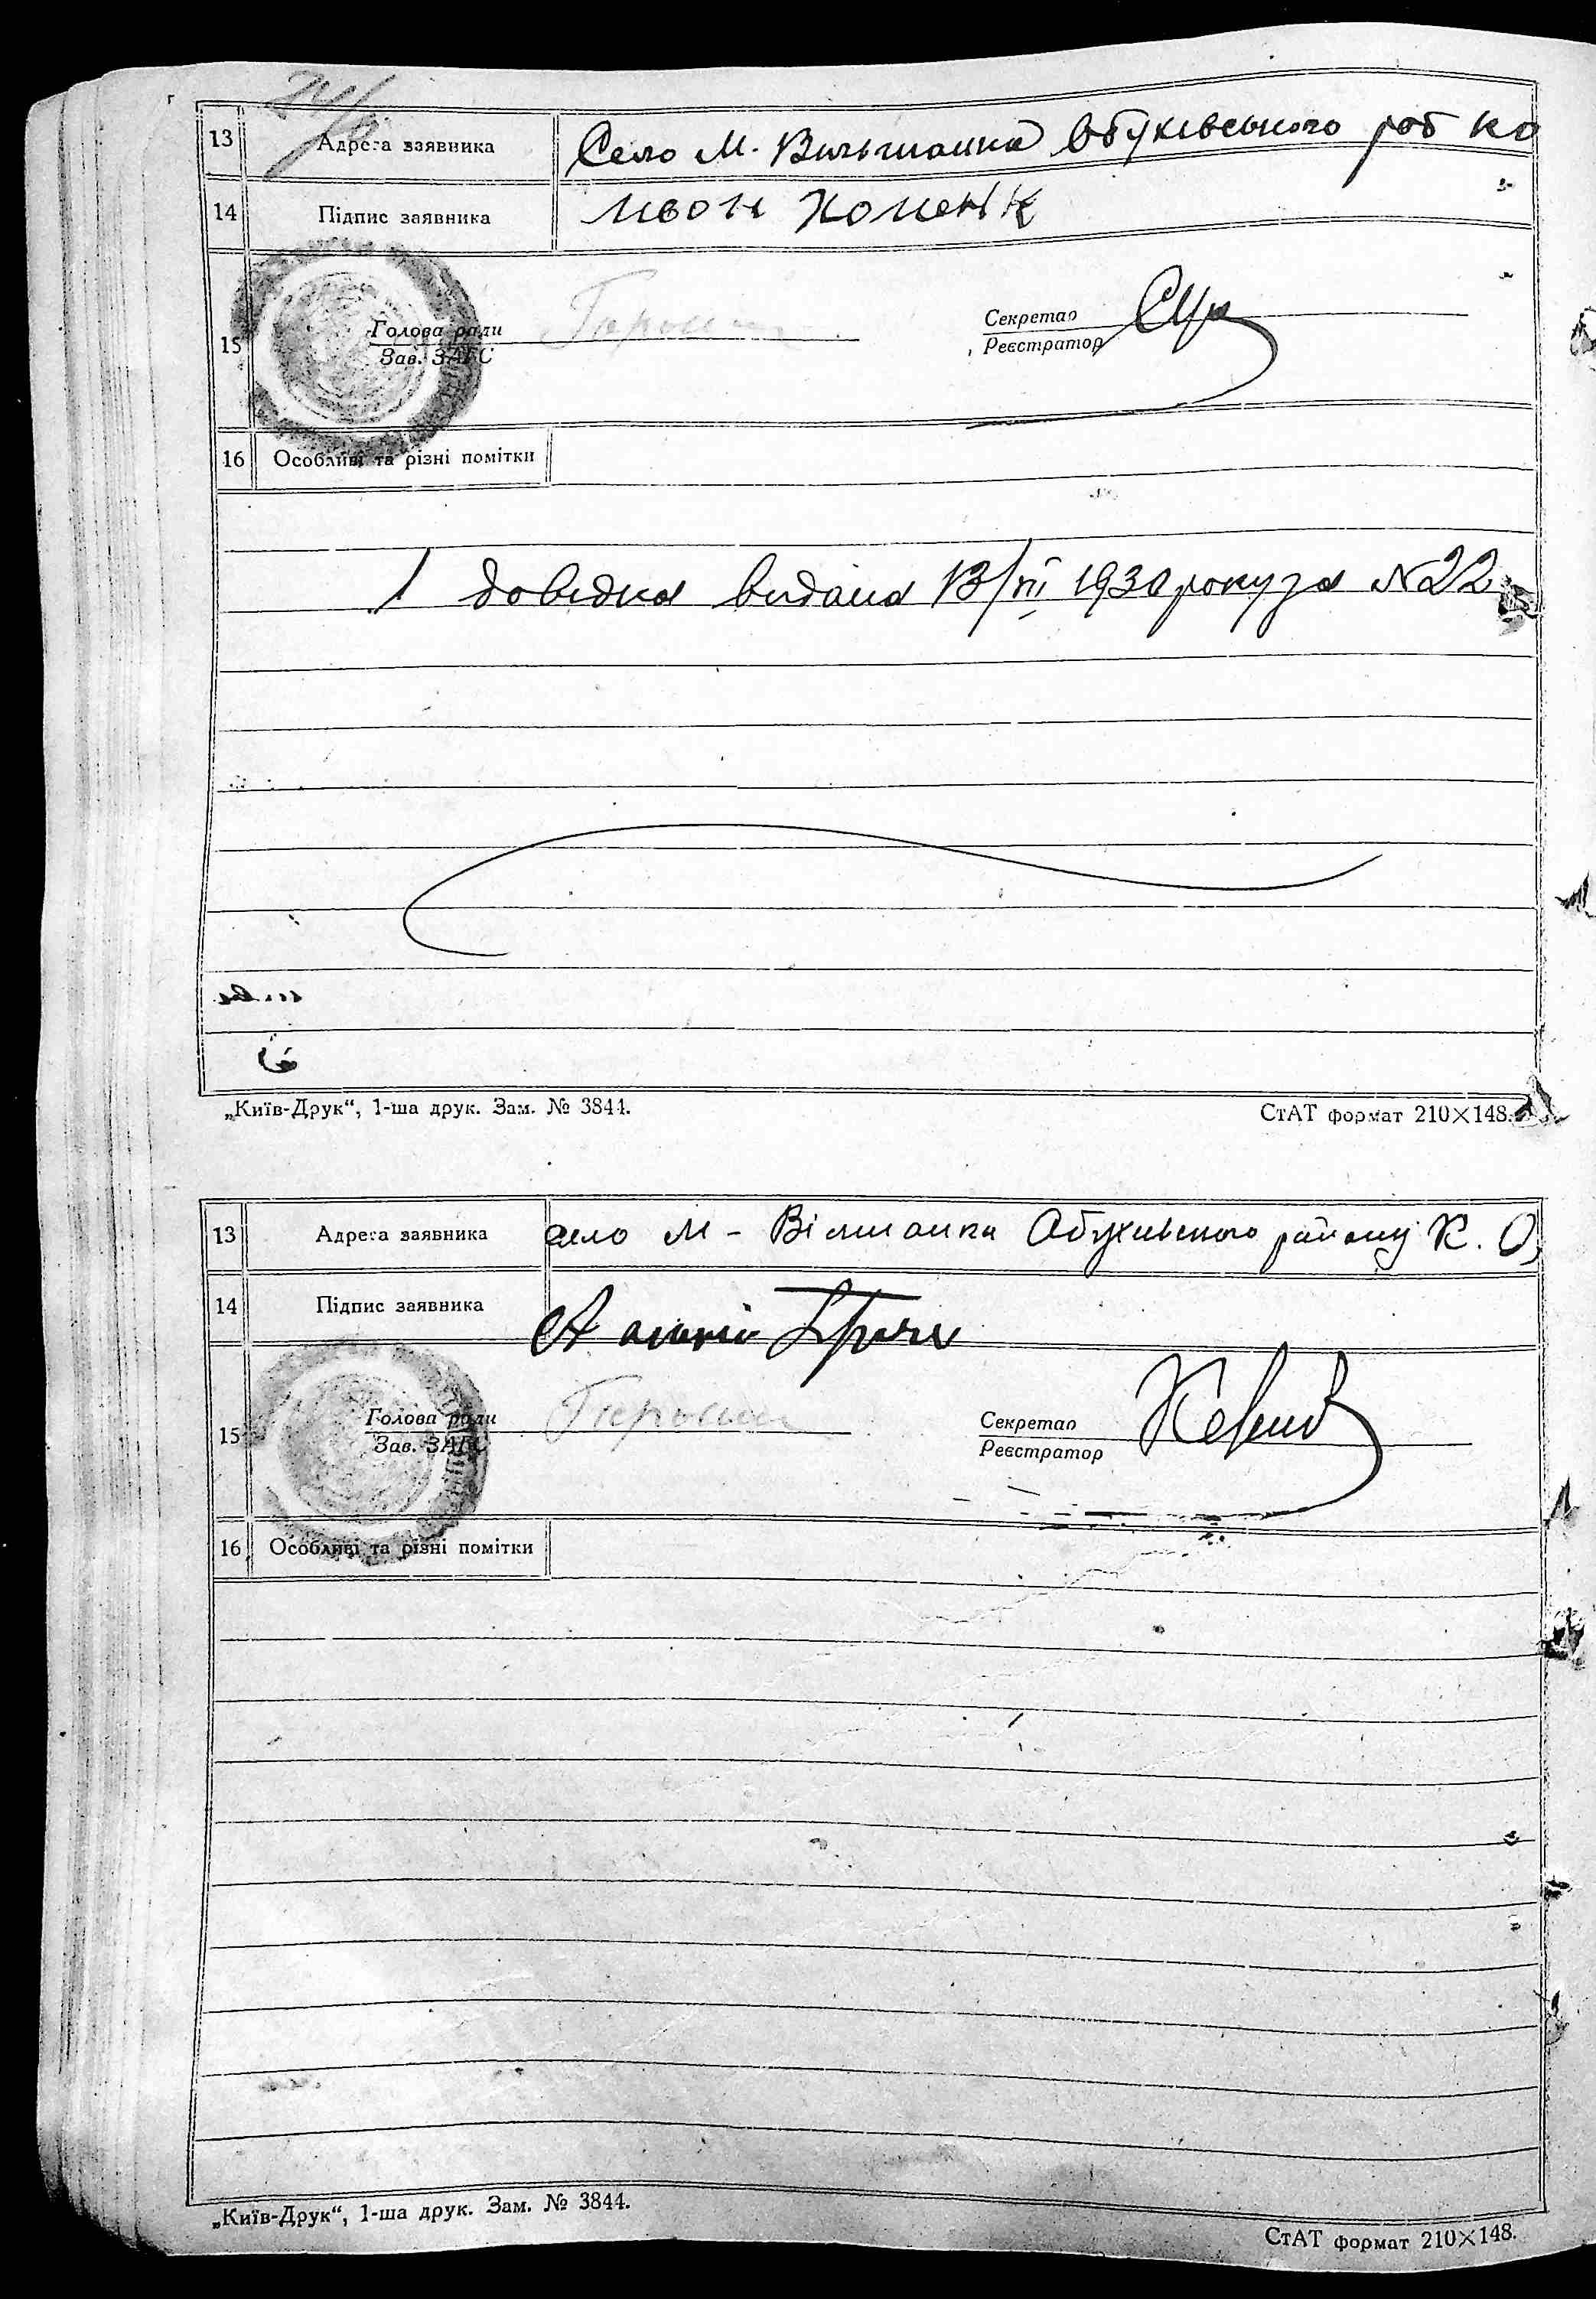 13 Адреса заявника Село М. Вильшанка Обуківського роб КО
14 Підпис заявника ивон хоменк
15 Голова ради
Зав. ЗАГС
Секретар
Реєстратор
16 Особливі та різні помітки
1 довідка видана 13/VII 1930 року за №22
„Київ-Друк“, 1-ша друк. Зам. № 3844.
СтАТ формат 210×148.
13 Адреса заявника село М - Вільшанка Обухівського району К. О,
14 Підпис заявника
15 Голова ради
Зав. ЗАГС
Секретар
Реєстратор
16 Особливі та різні помітки
„Київ-Друк“, 1-ша друк. Зам. № 3844.
СтАТ формат 210×148.